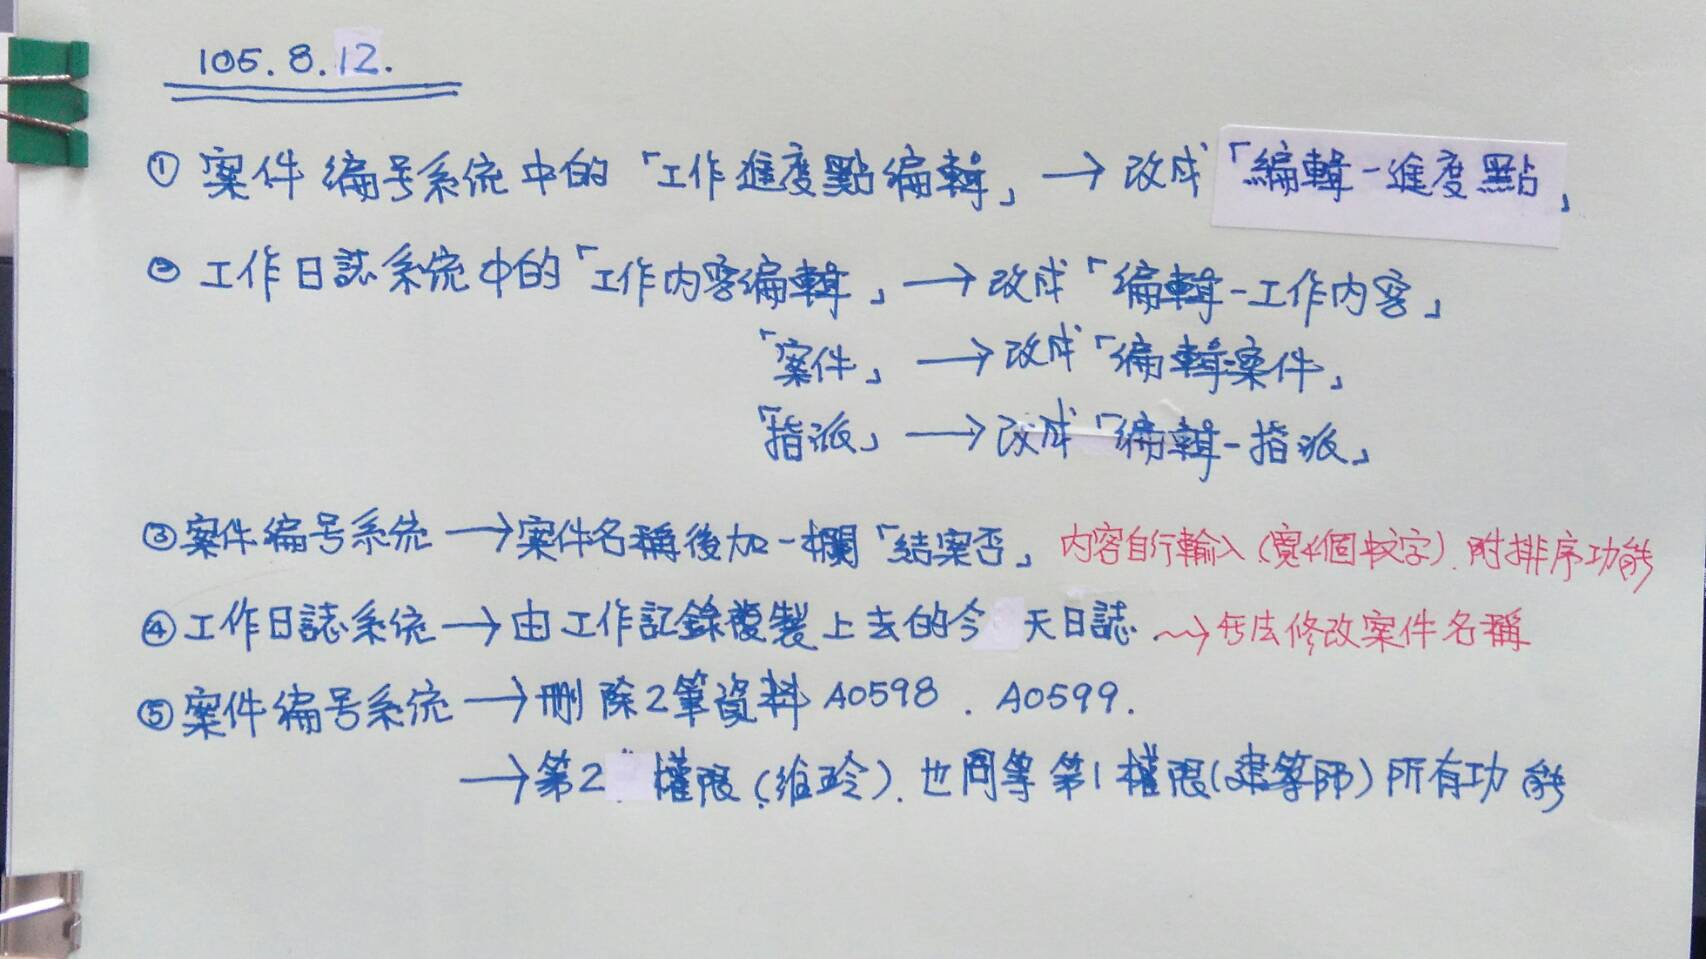 105.8.12.
① 案件編号系統中的「工作進度點編輯」→改成「編輯-進度點」
② 工作日誌系統中的「工作内容編輯」→改成「編輯-工作内容」
「案件」→改成「編輯-案件」
「指派」→改成「編輯-指派」
③ 案件編号系統→案件名稱後加一欄「結案否」内容自行輸入(寬4個中文字).附排序功能
④ 工作日誌系統→由工作記錄複製上去的今天日誌.→无法修改案件名稱
⑤ 案件編号系統→刪除2筆資料 A0598 . A0599.
→第2權限(維玲).也同等第1權限(建築師)所有功能